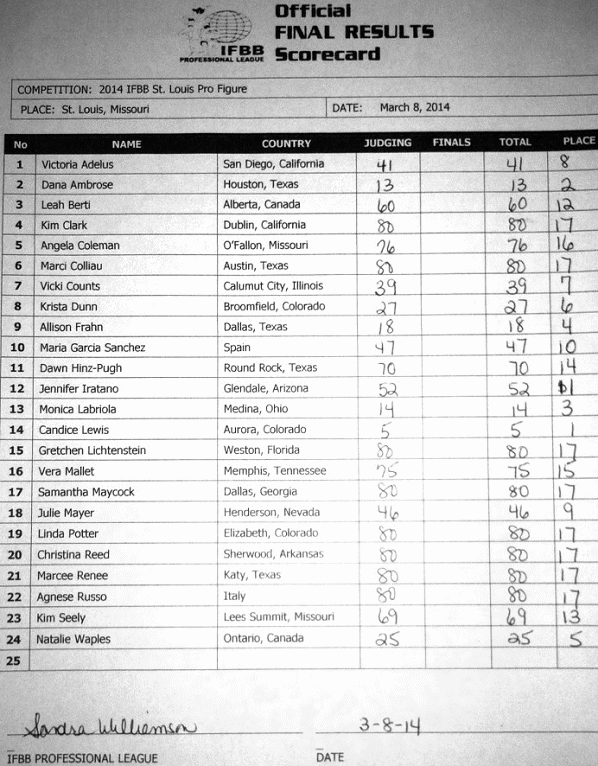 Official
FINAL RESULTS
Scorecard
IFBB
PROFESSIONAL LEAGUE
COMPETITION: 2014 IFBB St. Louis Pro Figure
PLACE: St. Louis, Missouri DATE: March 8, 2014
No NAME COUNTRY JUDGING FINALS TOTAL PLACE
1 Victoria Adelus San Diego, California 41 41 8
2 Dana Ambrose Houston, Texas 13 13 2
3 Leah Berti Alberta, Canada 60 60 12
4 Kim Clark Dublin, California 80 80 17
5 Angela Coleman O'Fallon, Missouri 76 76 16
6 Marci Colliau Austin, Texas 80 80 17
7 Vicki Counts Calumut City, Illinois 39 39 7
8 Krista Dunn Broomfield, Colorado 27 27 6
9 Allison Frahn Dallas, Texas 18 18 4
10 Maria Garcia Sanchez Spain 47 47 10
11 Dawn Hinz-Pugh Round Rock, Texas 70 70 14
12 Jennifer Iratano Glendale, Arizona 52 52 11
13 Monica Labriola Medina, Ohio 14 14 3
14 Candice Lewis Aurora, Colorado 5 5 1
15 Gretchen Lichtenstein Weston, Florida 80 80 17
16 Vera Mallet Memphis, Tennessee 75 75 15
17 Samantha Maycock Dallas, Georgia 80 80 17
18 Julie Mayer Henderson, Nevada 46 46 9
19 Linda Potter Elizabeth, Colorado 80 80 17
20 Christina Reed Sherwood, Arkansas 80 80 17
21 Marcee Renee Katy, Texas 80 80 17
22 Agnese Russo Italy 80 80 17
23 Kim Seely Lees Summit, Missouri 69 69 13
24 Natalie Waples Ontario, Canada 25 25 5
25
Sandra Williamson 3-8-14
IFBB PROFESSIONAL LEAGUE DATE